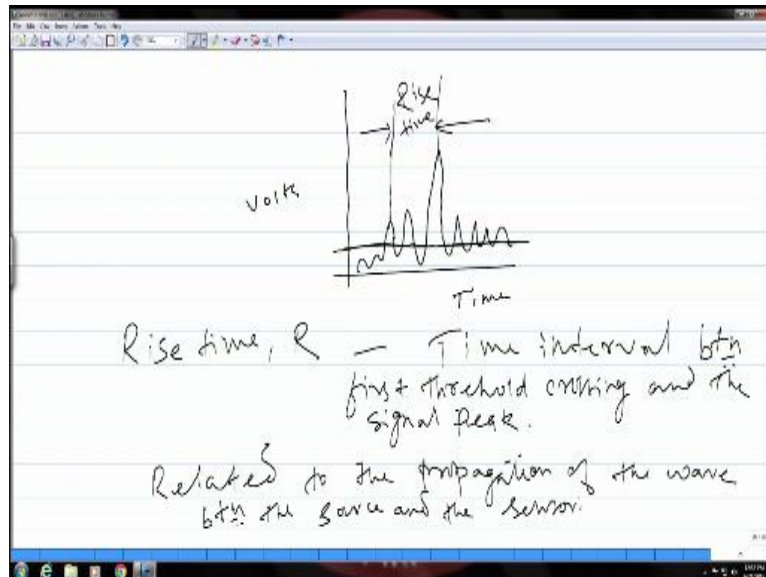 Rise
time
Volts
Time
Rise time, R — Time interval btn
first threshold crossing and the
signal peak.
Related to the propagation of the wave
btn the source and the sensor.